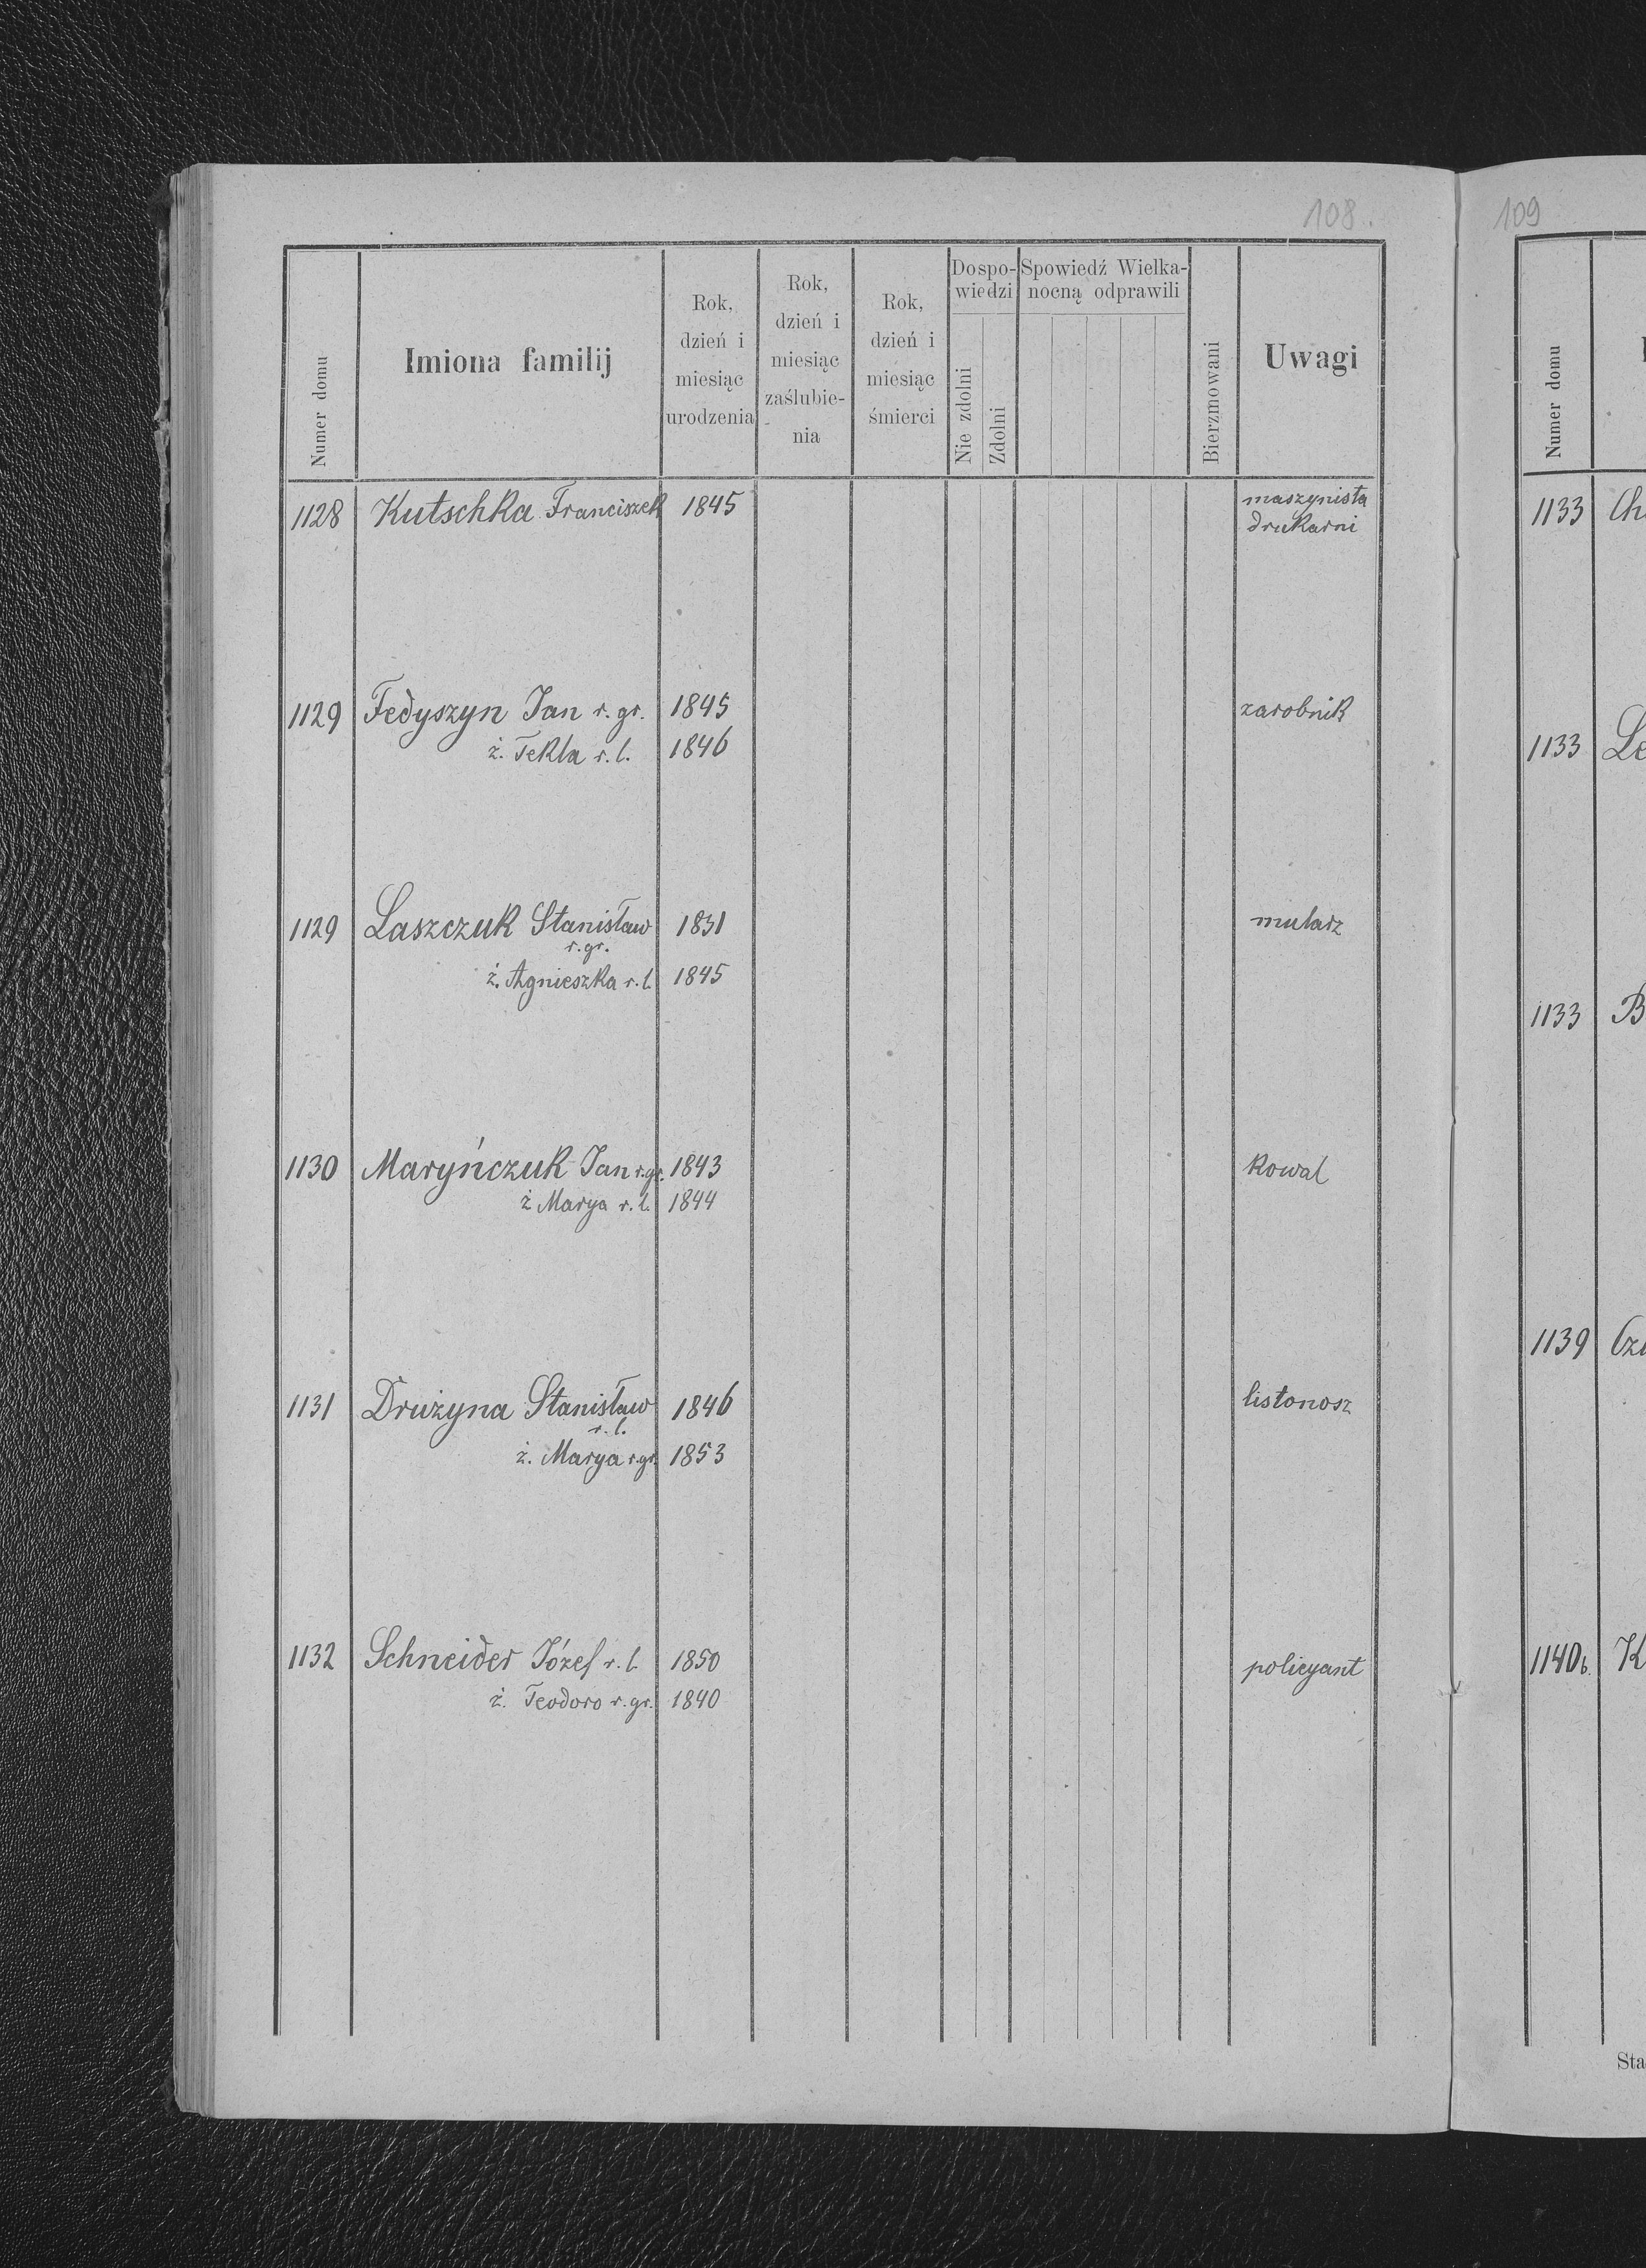 108.
Numer domu
Imiona familij
Rok, dzień i miesiąc urodzenia
Rok, dzień i miesiąc zaślubie- nia
Rok, dzień i miesiąc śmierci
Dospo- wiedzi
Nie zdolni
Zdolni
Spowiedź Wielka- nocną odprawili
Bierzmowani
Uwagi
1128 Kutschka Franciszek 1845 maszynista
drukarni
1129 Fedyszyn Jan r. gr. 1845 zarobnik
ż. Tekla r. l. 1846
1129 Laszczuk Stanisław 1831 mularz
r. gr.
ż. Agnieszka r. l. 1845
1130 Maryńczuk Jan r. gr. 1843 Kowal
ż Marya r. l. 1844
1131 Drużyna Stanisław 1846 listonosz
r. l.
ż. Marya r. gr. 1853
1132 Schneider Józef r. l. 1850 policyant
ż. Teodoro r. gr. 1840
109
Numer domu
1133 Ch
1133 Le
1133 B
1139
1140b. K
Sta